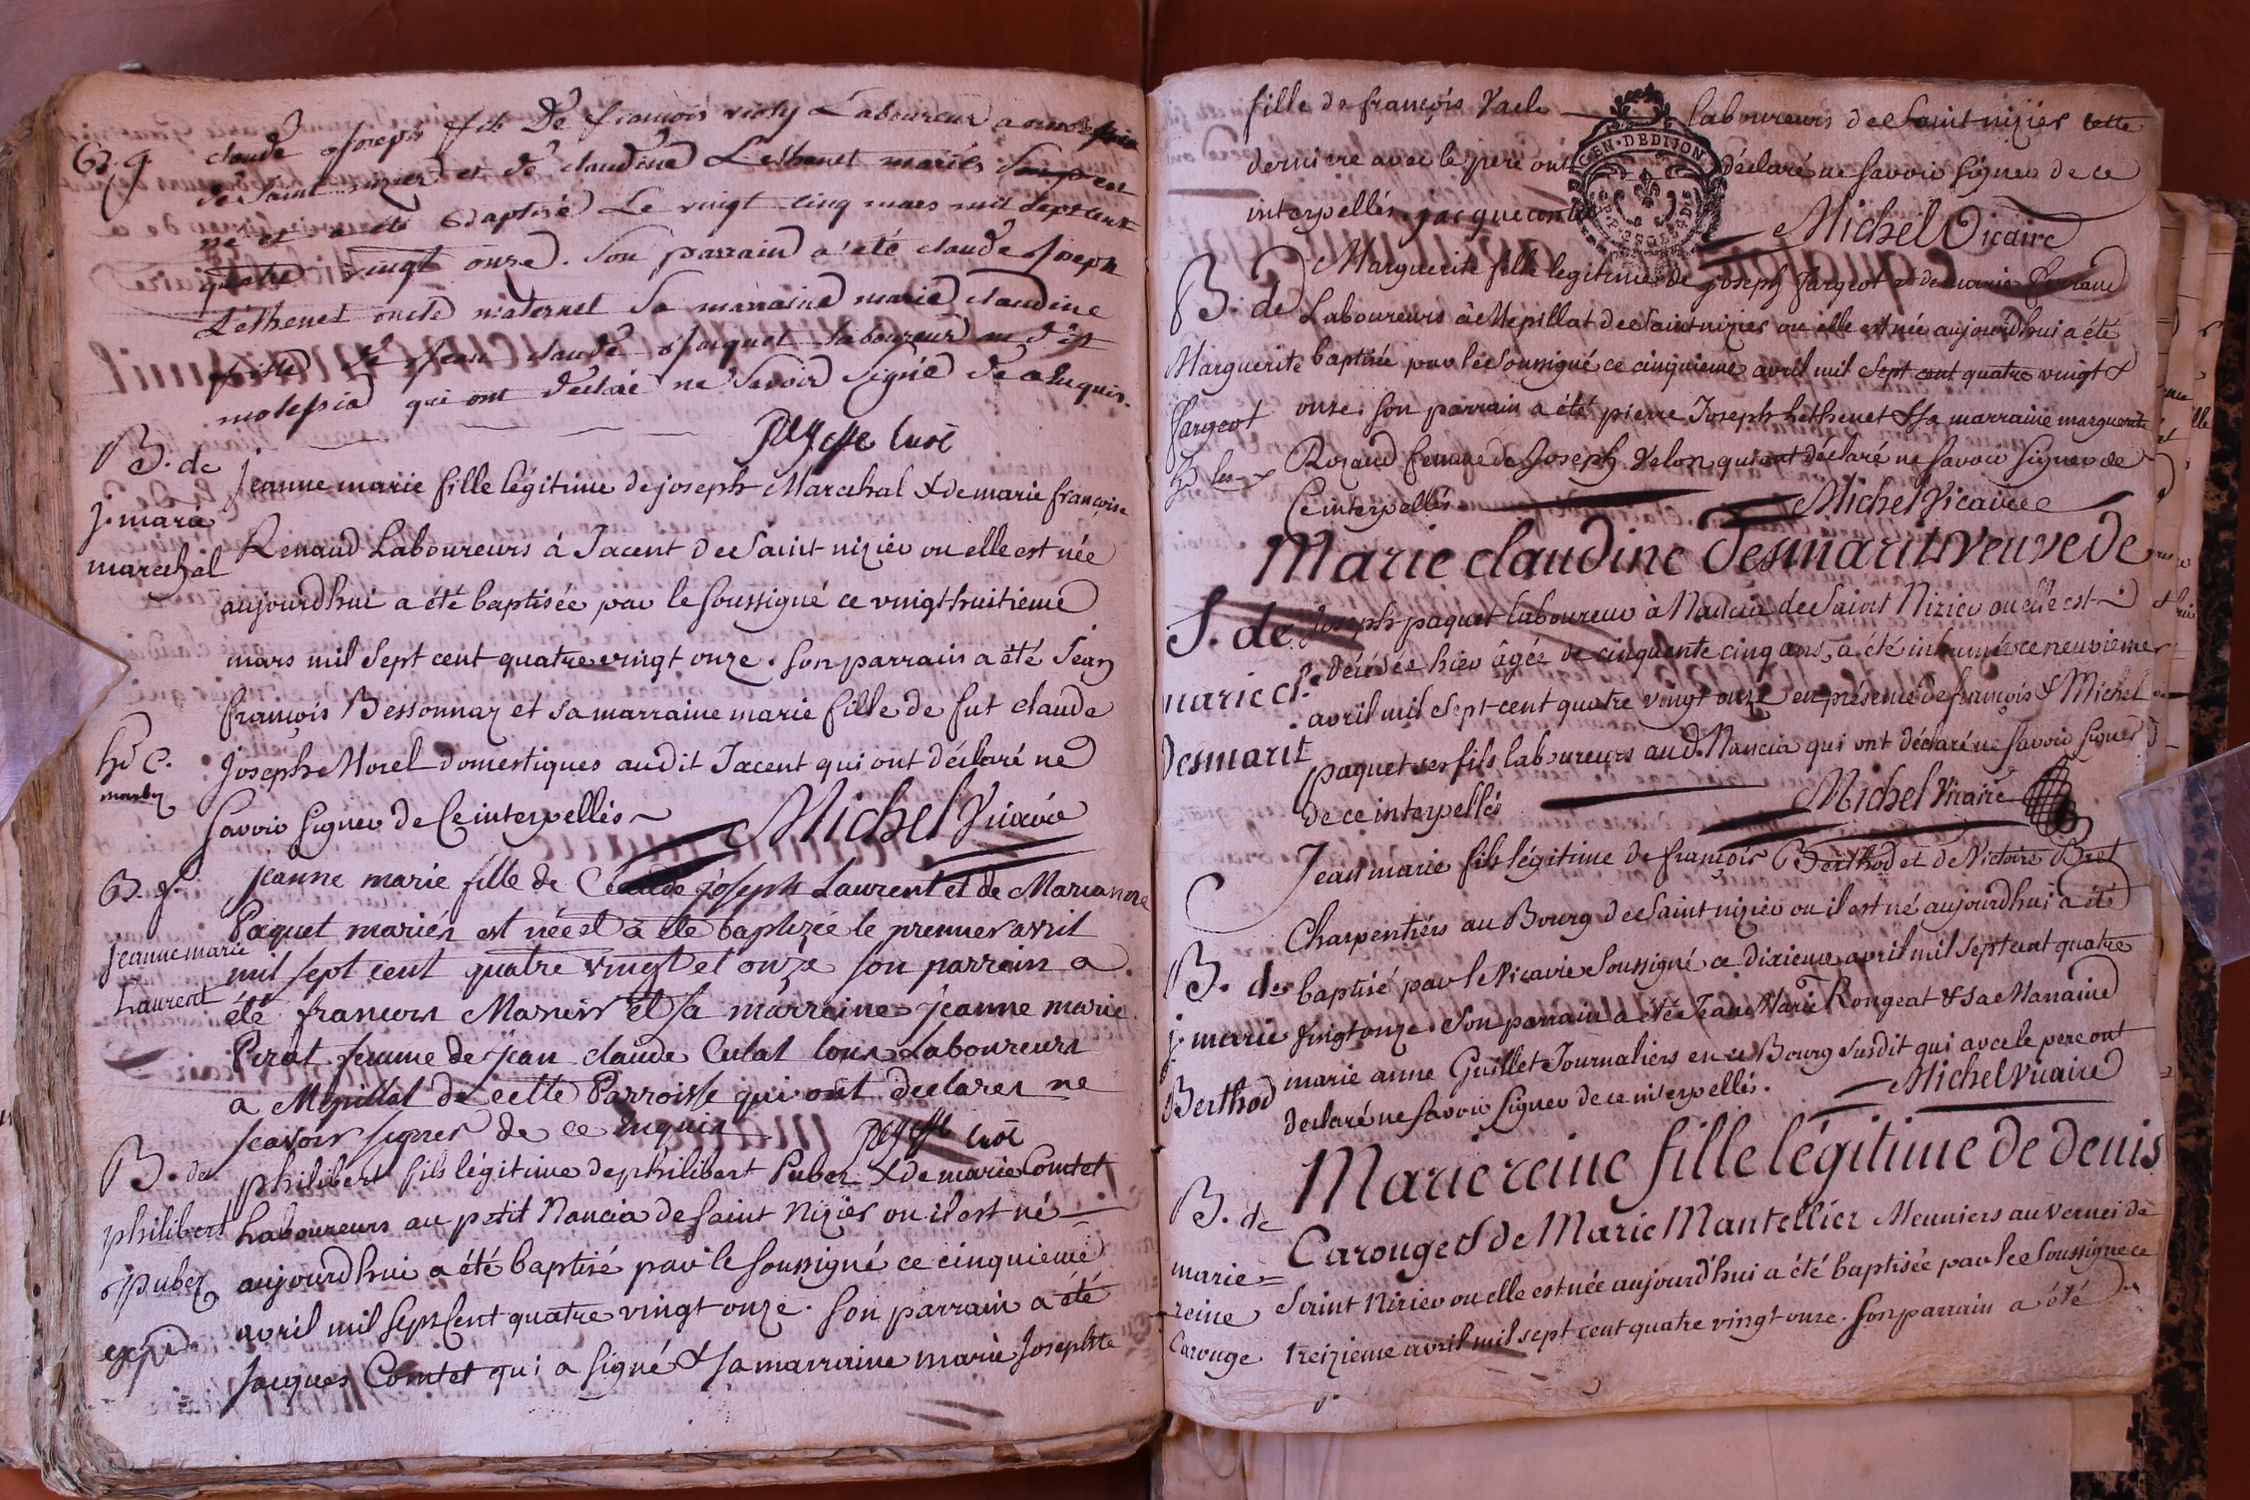 B. g.
claude joseph fils De françois vichy Laboureur
de Saint nizier et de claudine Lethenet mariés
né et a été Baptisé Le vingt cinq mars mil Sept cent
quatre vingt onze. Son parrain a été claude joseph
Lethenet oncle maternel Sa marraine marie claudine
fille de jean claude jacquet Laboureur
molessia qui ont déclaré ne Savoir Signé de ce requis.
curé
B. de
j. marie
marechal
jeanne marie fille légitime de joseph Marechal & de marie françoise
Renaud Laboureurs à Jacent de Saint nizier ou elle est née
aujourdhui a été baptisée par le soussigné ce vingthuitieme
mars mil Sept cent quatre vingt onze. Son parrain a été Jean
françois Bessonnaz et sa marraine marie fille de fut claude
joseph Morel domestiques audit Jacent qui ont déclaré ne
Savoir Signer de Ce interpellés
Michel Vicaire
B. f.
jeanne marie
Laurent
jeanne marie fille de Claude joseph Laurent et de Marianne
Paquet mariés est née et a ete baptizée le premier avril
mil sept cent quatre vingt et onze son parrain a
été francois Marier et sa marraine jeanne marie
Perat femme de jean claude Culat tous Laboureurs
a Mepillat de cette Parroisse qui ont declarer ne
scavoir signer de ce enquis
curé
B. de
philibert
pubez
philibert fils légitime de philibert Pubez & de marie Comtet
Laboureurs au petit Nancia de Saint Nizier ou il est né
aujourdhui a été baptisé par le soussigné ce cinquieme
avril mil Sept Cent quatre vingt onze. Son parrain a été
Jacques Comtet qui a signé & sa marraine marie Josephte
fille de françois Vacle laboureurs de Saint nizier cette
derniere avec le pere ont déclaré ne Savoir Signer de ce
interpellés. jacque comtet
GEN. DE DIJON
Michel Vicaire
B. de
Marguerite
fargeot
Marguerite fille legitime de joseph fargeot & de marie Renaud
Laboureurs à Mepillat de Saint nizier ou elle est née aujourdhui a été
baptisée par le Soussigné ce cinquieme avril mil Sept cent quatre vingt &
onze. Son parrain a été pierre Joseph Lethenet & sa marraine marguerite
Rozand femme de Joseph Velon qui ont déclaré ne Savoir Signer de
Ce interpellés
Michel Vicaire
Marie claudine Desmarit veuve de
S. de
marie cl.
Desmarit
Joseph paquet laboureur à Nancia de Saint Nizier ou elle est
décédée hier âgée de cinquante cinq ans, a été inhumée ce neuvieme
avril mil Sept cent quatre vingt onze en présence de françois & Michel
paquet ses fils laboureurs aud. Nancia qui ont déclaré ne Savoir Signer
de ce interpellés
Michel Vicaire
Jean marie fils légitime de françois Berthod et de Victoire Bret
Charpentiers au Bourg de Saint nizier ou il est né aujourdhui a été
B. de
j. marie
Berthod
baptisé par le Vicaire Soussigné ce dixieme avril mil sept cent quatre
vingt onze. Son parrain a été Jean Marie Rongeat & sa Marraine
marie anne Guillet Journaliers en ce Bourg susdit qui avec le pere ont
declaré ne Savoir Signer de ce interpellés.
Michel Vicaire
Marie reine fille légitime de denis
B. de
marie=
reine
Carouge
Carouge & de Marie Mantellier Meuniers au Vernei de
Saint Nizier ou elle est née aujourd'hui a été baptisée par le Soussigné ce
treizieme avril mil sept cent quatre vingt onze. Son parrain a été